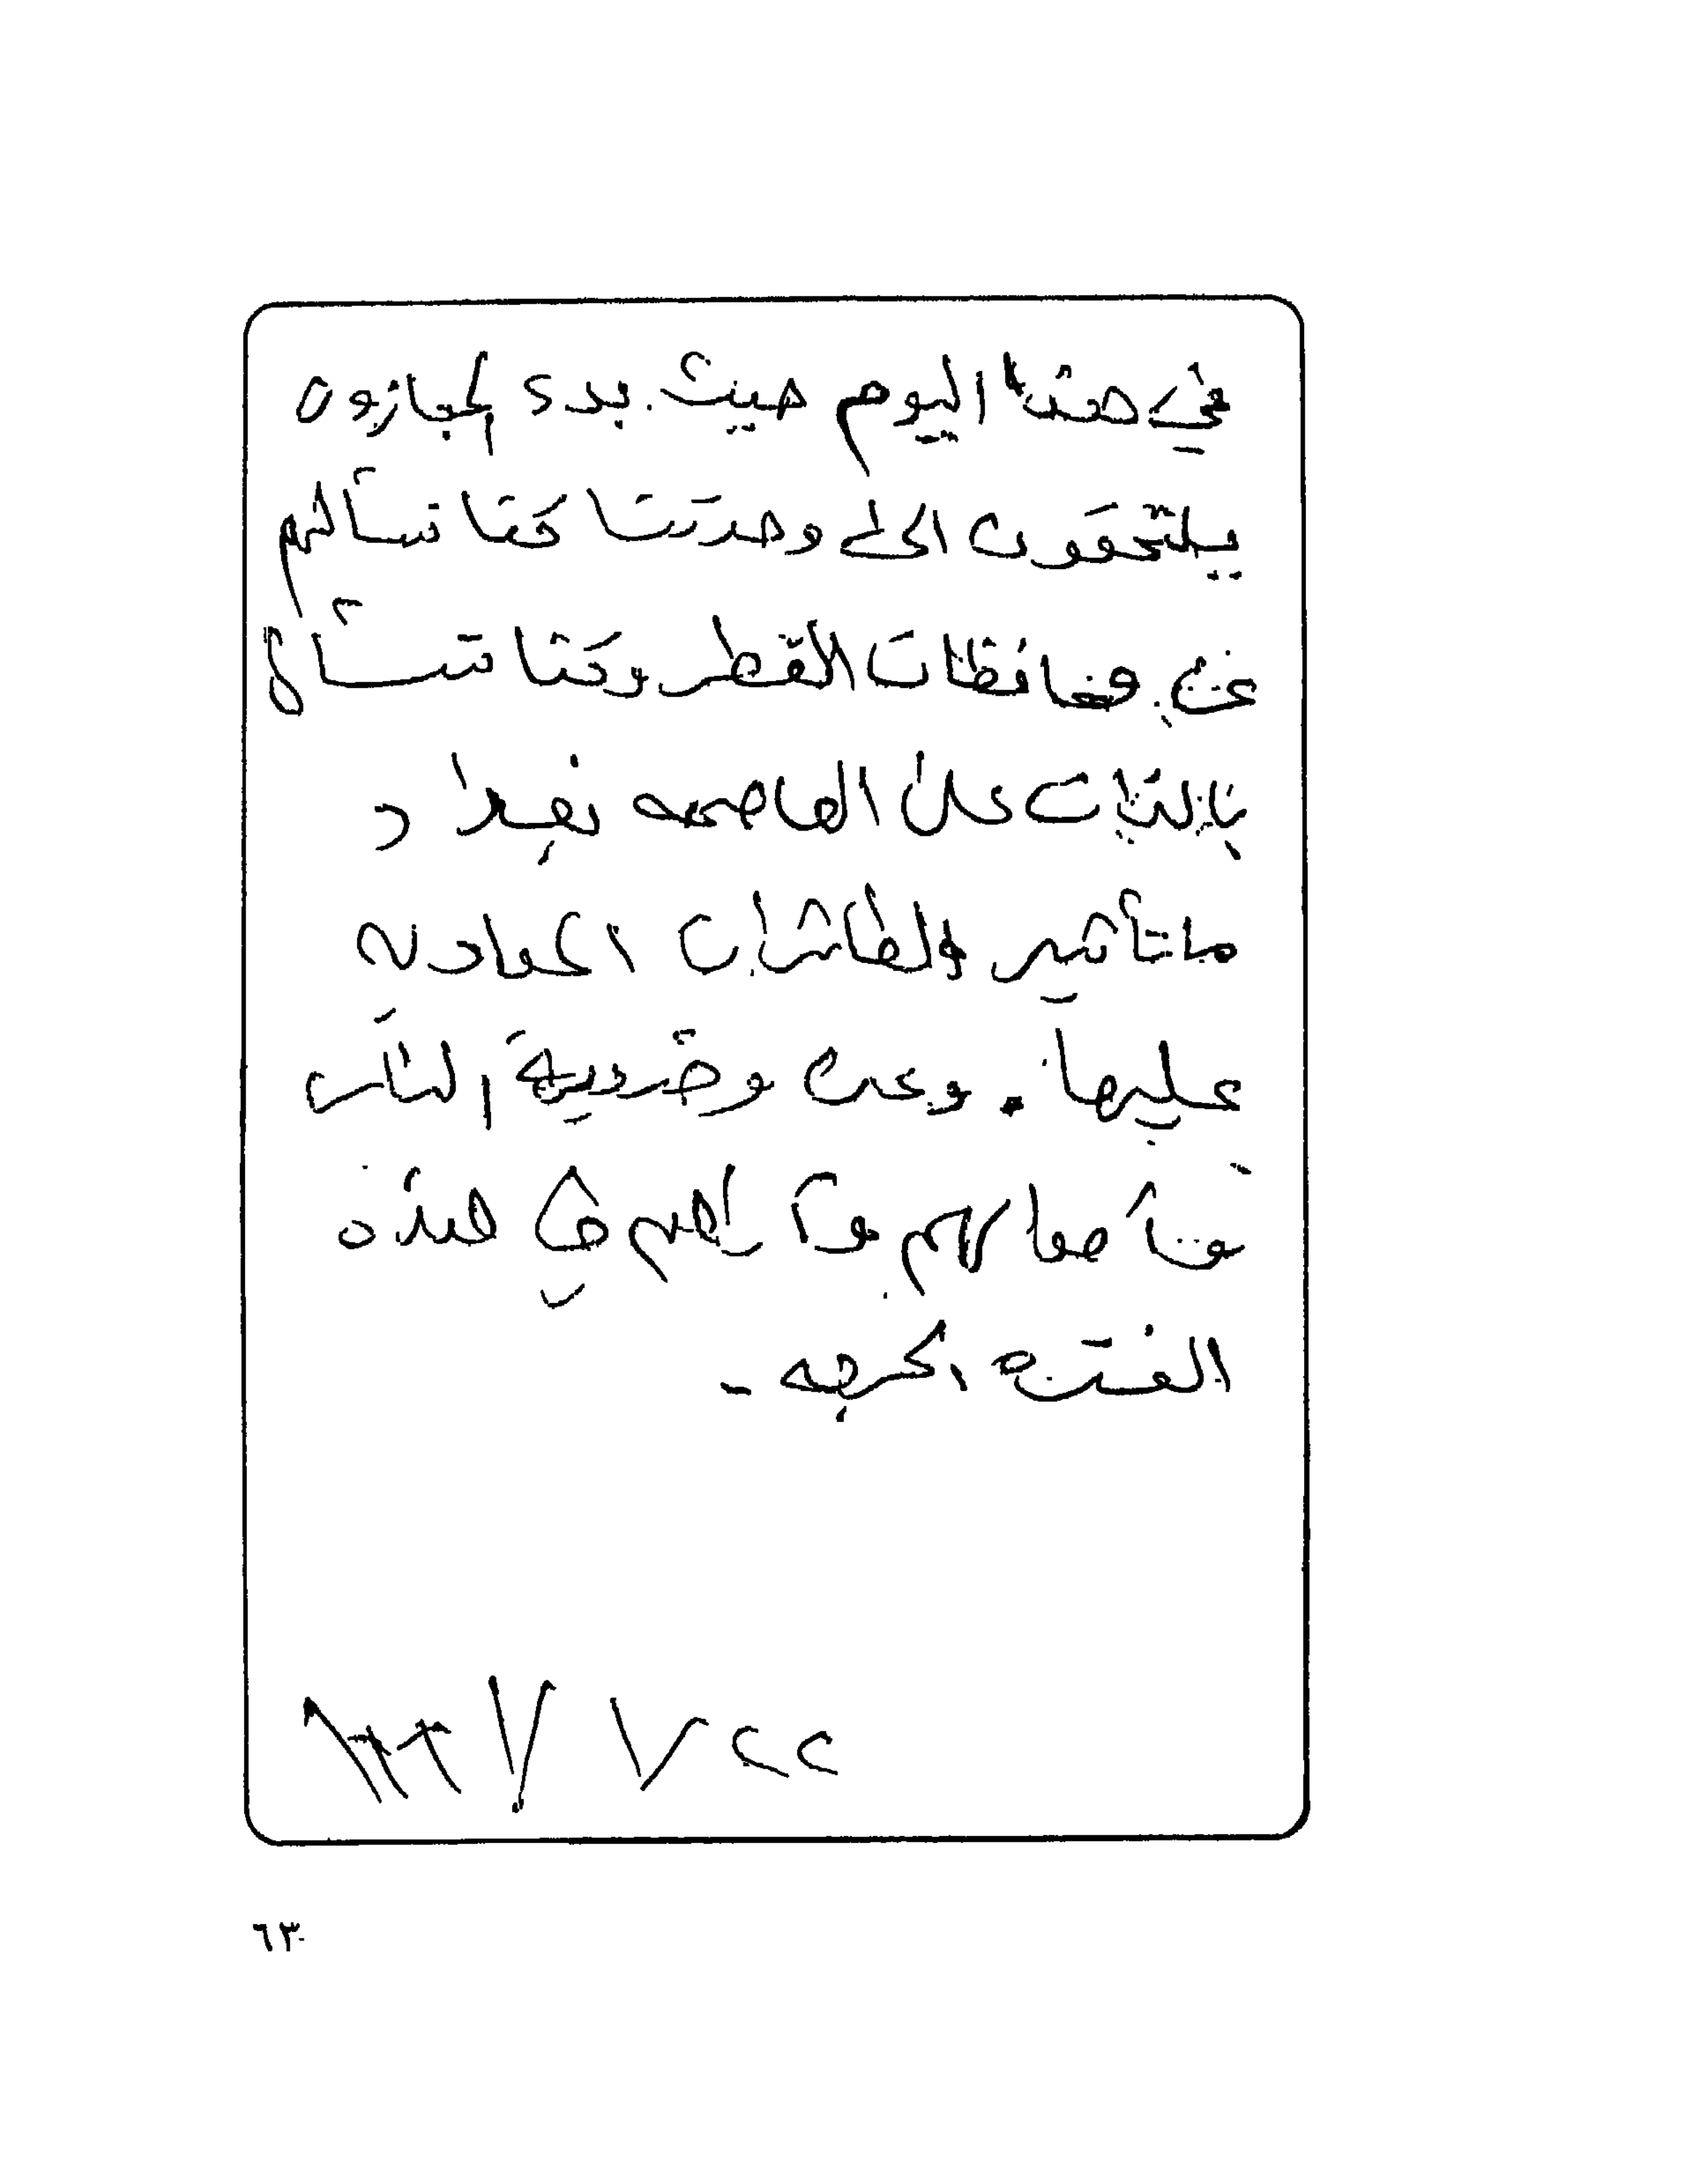 في هذا اليوم حيث بدء المجازون
يلتحقون الى وحدتنا كنا نسألهم
عن محافظات القطر وكنا نسأل
بالذات على العاصمه بغداد
ما تأثير الطائرات المعادية
عليها . وعن وضعية الناس
لهم في هذه
الفتره الحرجه -
٦٣